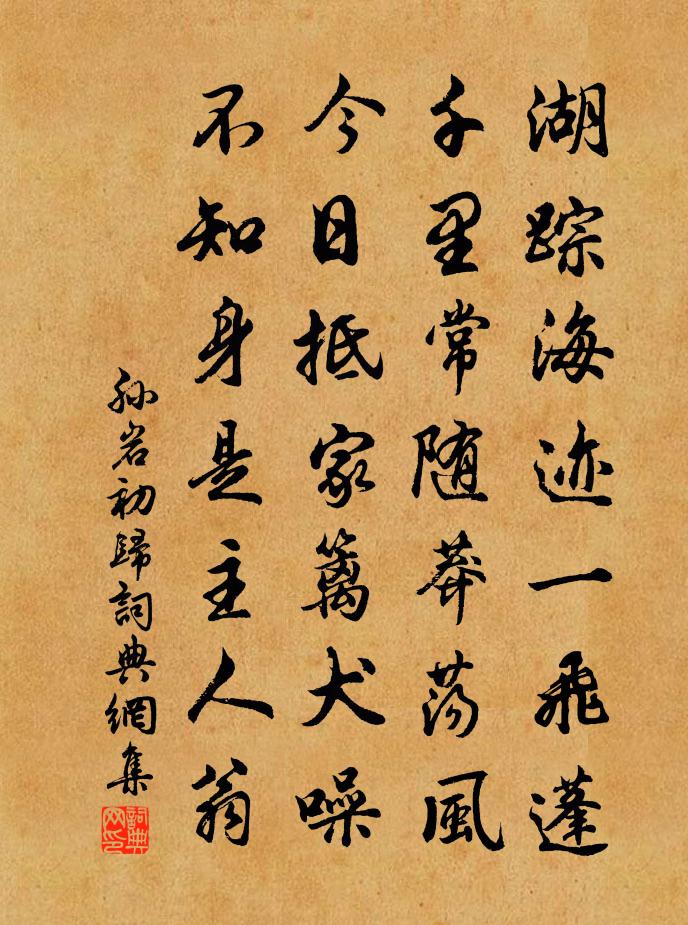 湖踪海迹一飛蓬
千里常随莽荡風
今日抵家篱犬噪
不知身是主人翁
孫岩初歸詞典網集
詞典网印